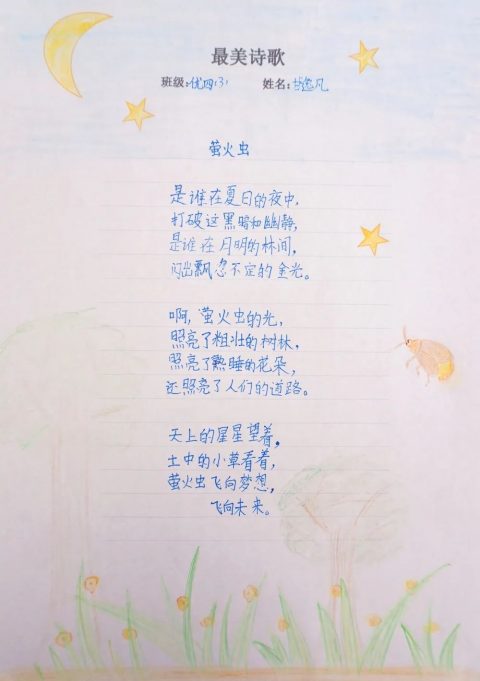 最美诗歌
班级:优四(3) 姓名:逸凡
萤火虫
是谁在夏日的夜中,
打破这黑暗和幽静,
是谁在月明的林间,
闪出飘忽不定的金光。
啊,萤火虫的光,
照亮了粗壮的树林,
照亮了熟睡的花朵,
还照亮了人们的道路。
天上的星星望着,
土中的小草看着,
萤火虫飞向梦想,
飞向未来。